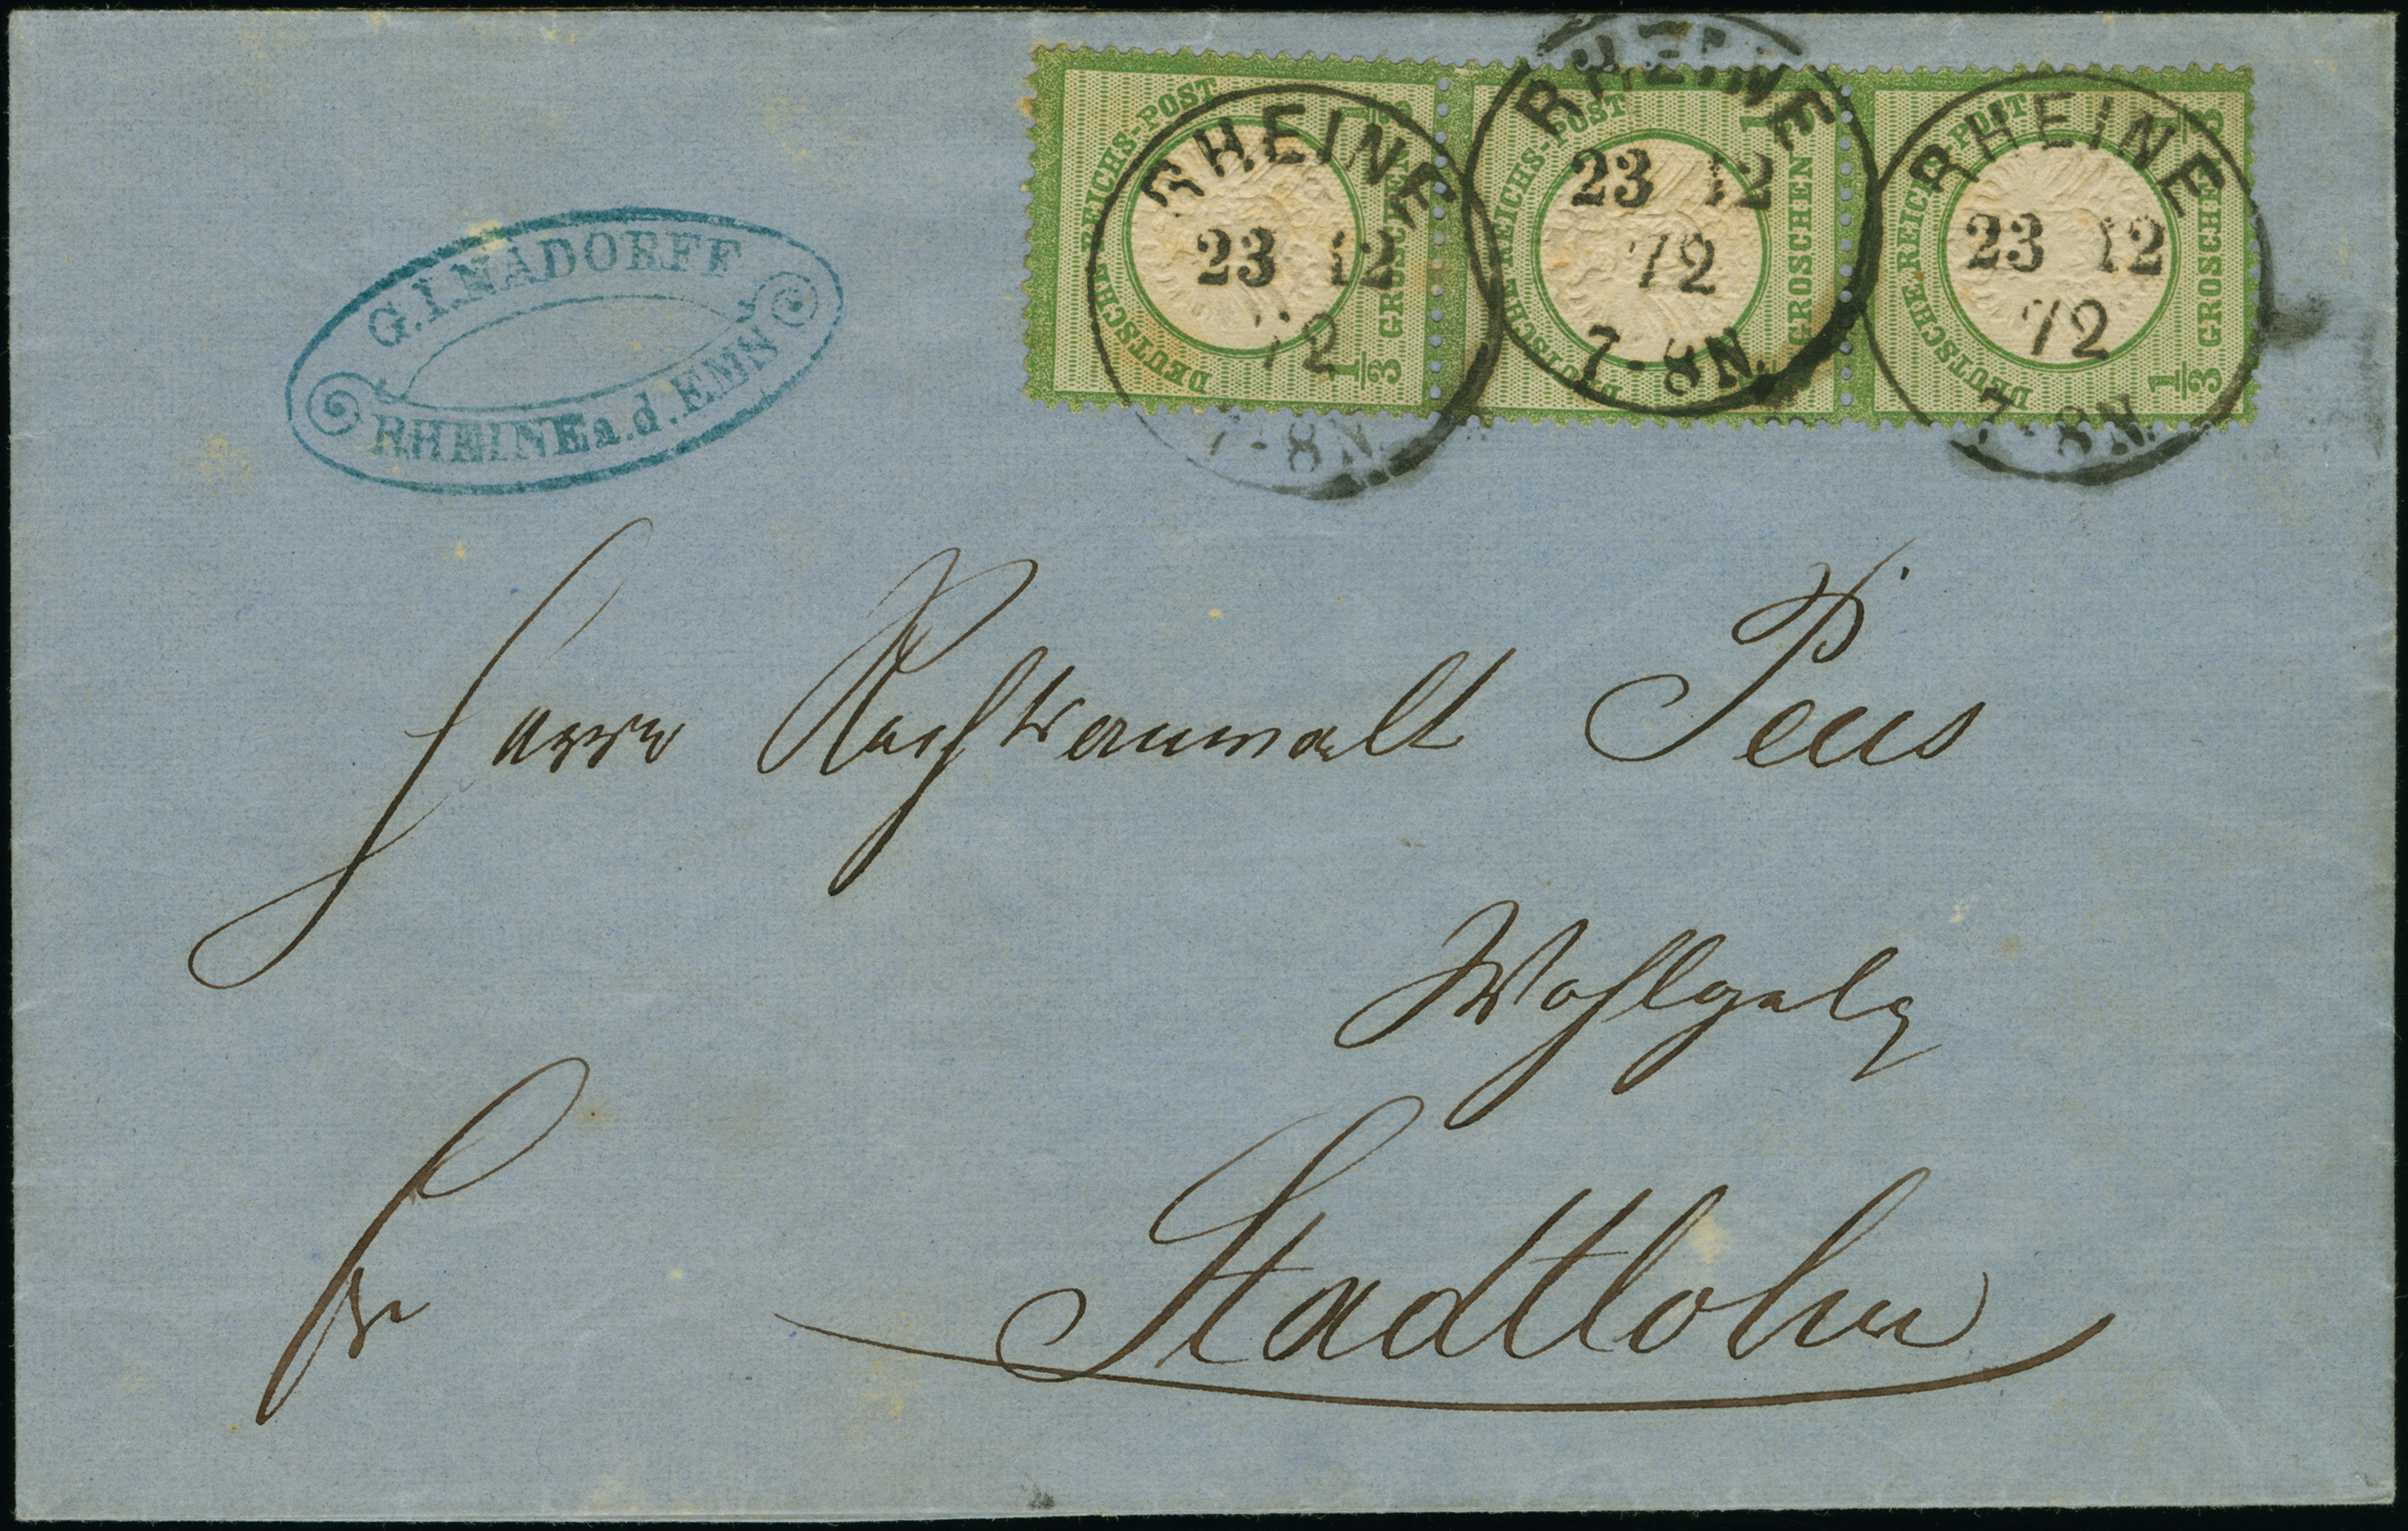 G.I.NADORFF
RHEINE a.d. EMS
DEUTSCHE REICHS-POST
1/3 GROSCHEN 1/3
RHEINE
23 12
72
7-8N.
DEUTSCHE REICHS-POST
1/3 GROSCHEN
RHEINE
23 12
72
7-8N.
DEUTSCHE REICHS-POST
1/3 GROSCHEN 1/3
RHEINE
23 12
72
7-8N.
Herrn Rechtsanwalt Peus
Wohlgeb
fr
Stadtlohn